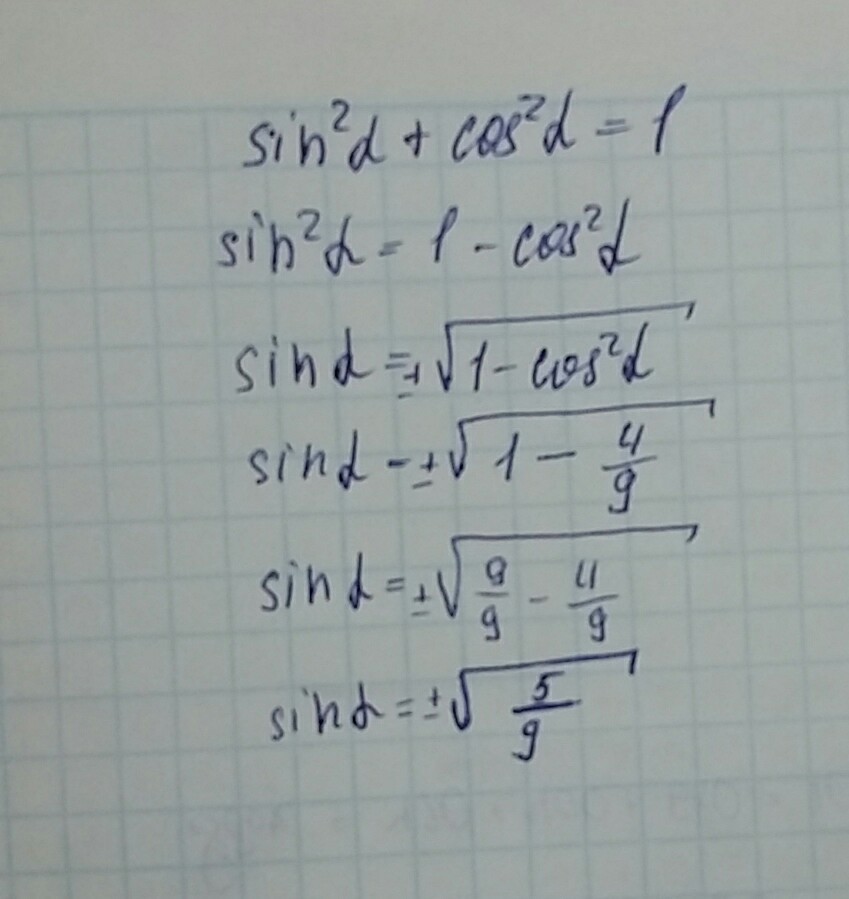 sin²α + cos²α = 1
sin²α = 1 - cos²α
sin α = ±√(1 - cos²α)
sin α - ±√(1 - 4/9)
sin α = ±√(9/9 - 4/9)
sin α = ±√(5/9)